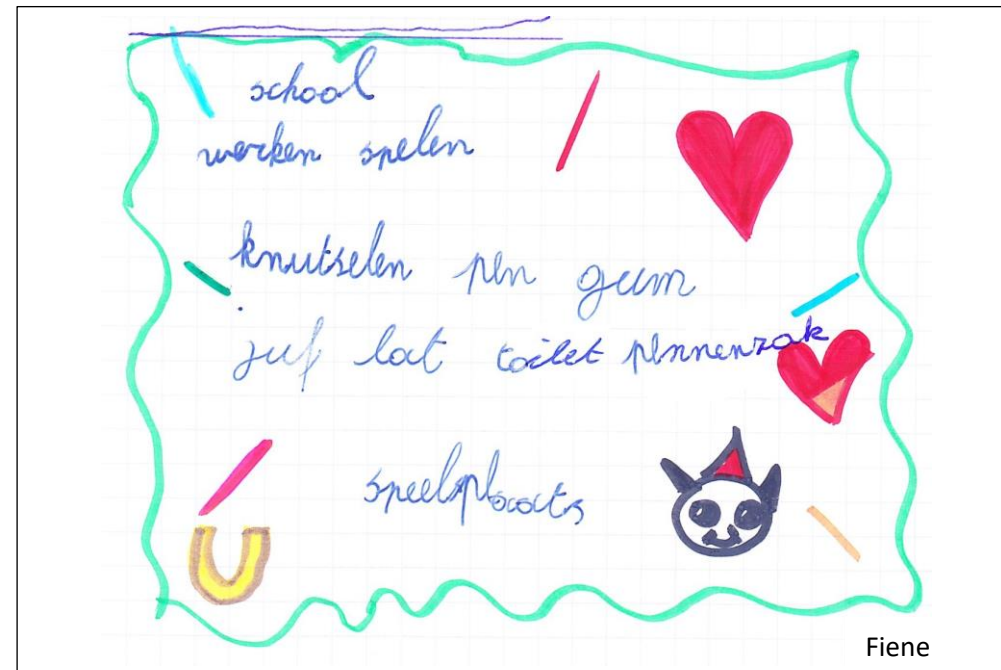 school
werken spelen
knutselen pen gum
juf lat toilet pennenzak
speelplaats
Fiene